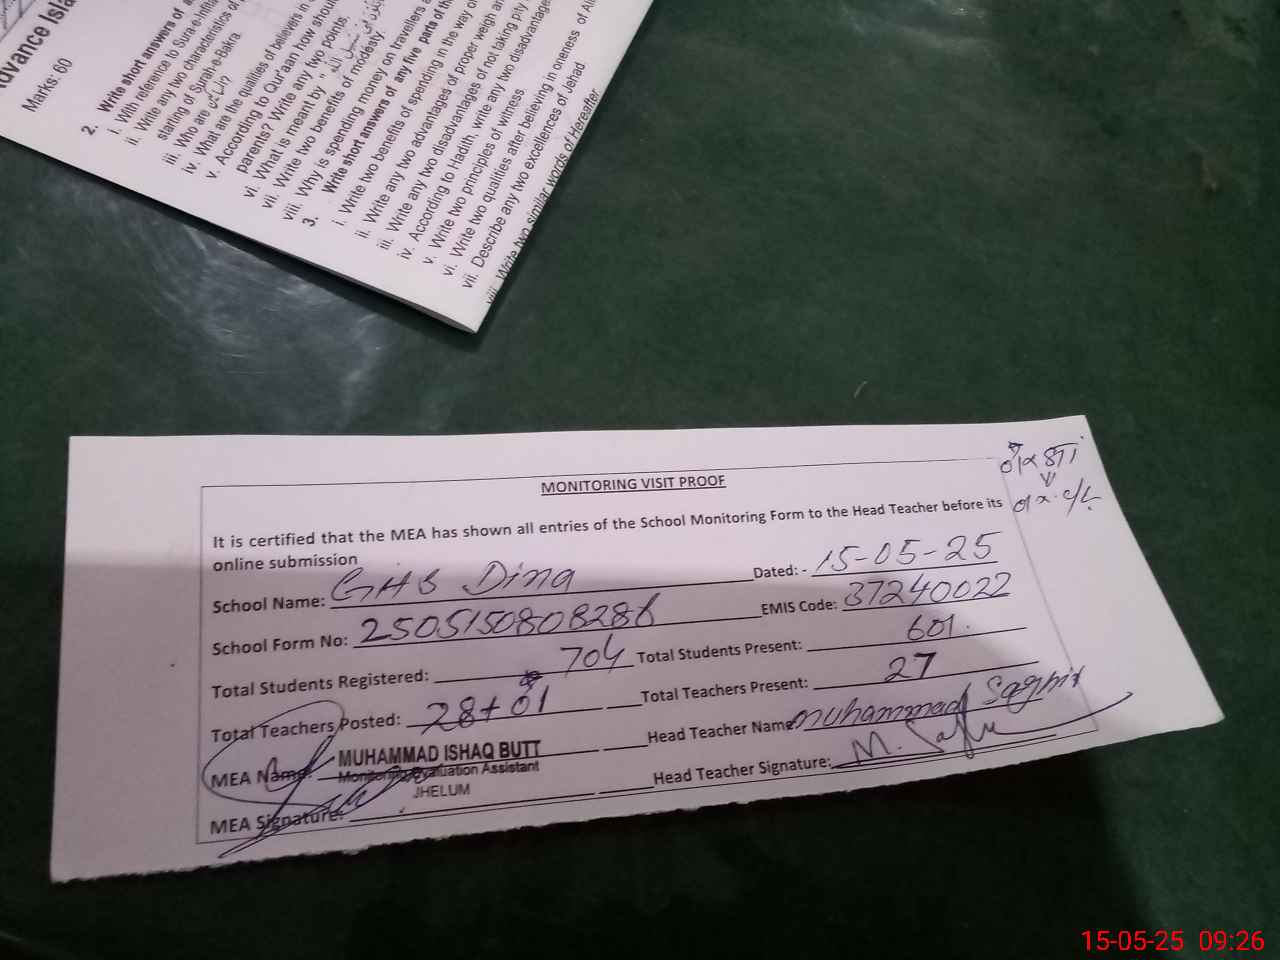 dvance Isla
Marks: 60
2. Write short answers of a
i. With reference to Sura-e-Infita
ii. Write any two characteristics of
starting of Surah-e-Bakra.
iii. Who are
iv. What are the qualities of believers in
v. According to Qur'aan how shou
parents? Write any two points.
vi. What is meant by "
vii. Write two benefits of modesty.
viii. Why is spending money on travellers a
3. Write short answers of any five parts of the
i. Write two benefits of spending in the way o
ii. Write any two advantages of proper weigh an
iii. Write any two disadvantages of not taking pity
iv. According to Hadith, write any two disadvantage
v. Write two principles of witness.
vi. Write two qualities after believing in oneness of Al
vii. Describe any two excellences of Jehad
viii. Write two similar words of Hereafter
MONITORING VISIT PROOF
01x STI
01 x C/L
It is certified that the MEA has shown all entries of the School Monitoring Form to the Head Teacher before its
online submission
School Name: GHS Dina Dated: - 15-05-25
School Form No: 2505150808286 EMIS Code: 37240022
Total Students Registered: 704 Total Students Present: 601.
Total Teachers Posted: 28+01 Total Teachers Present: 27
MEA Name: MUHAMMAD ISHAQ BUTT Head Teacher Name: Muhammad Saghir
Monitoring Evaluation Assistant
JHELUM
MEA Signature: Head Teacher Signature:
15-05-25 09:26